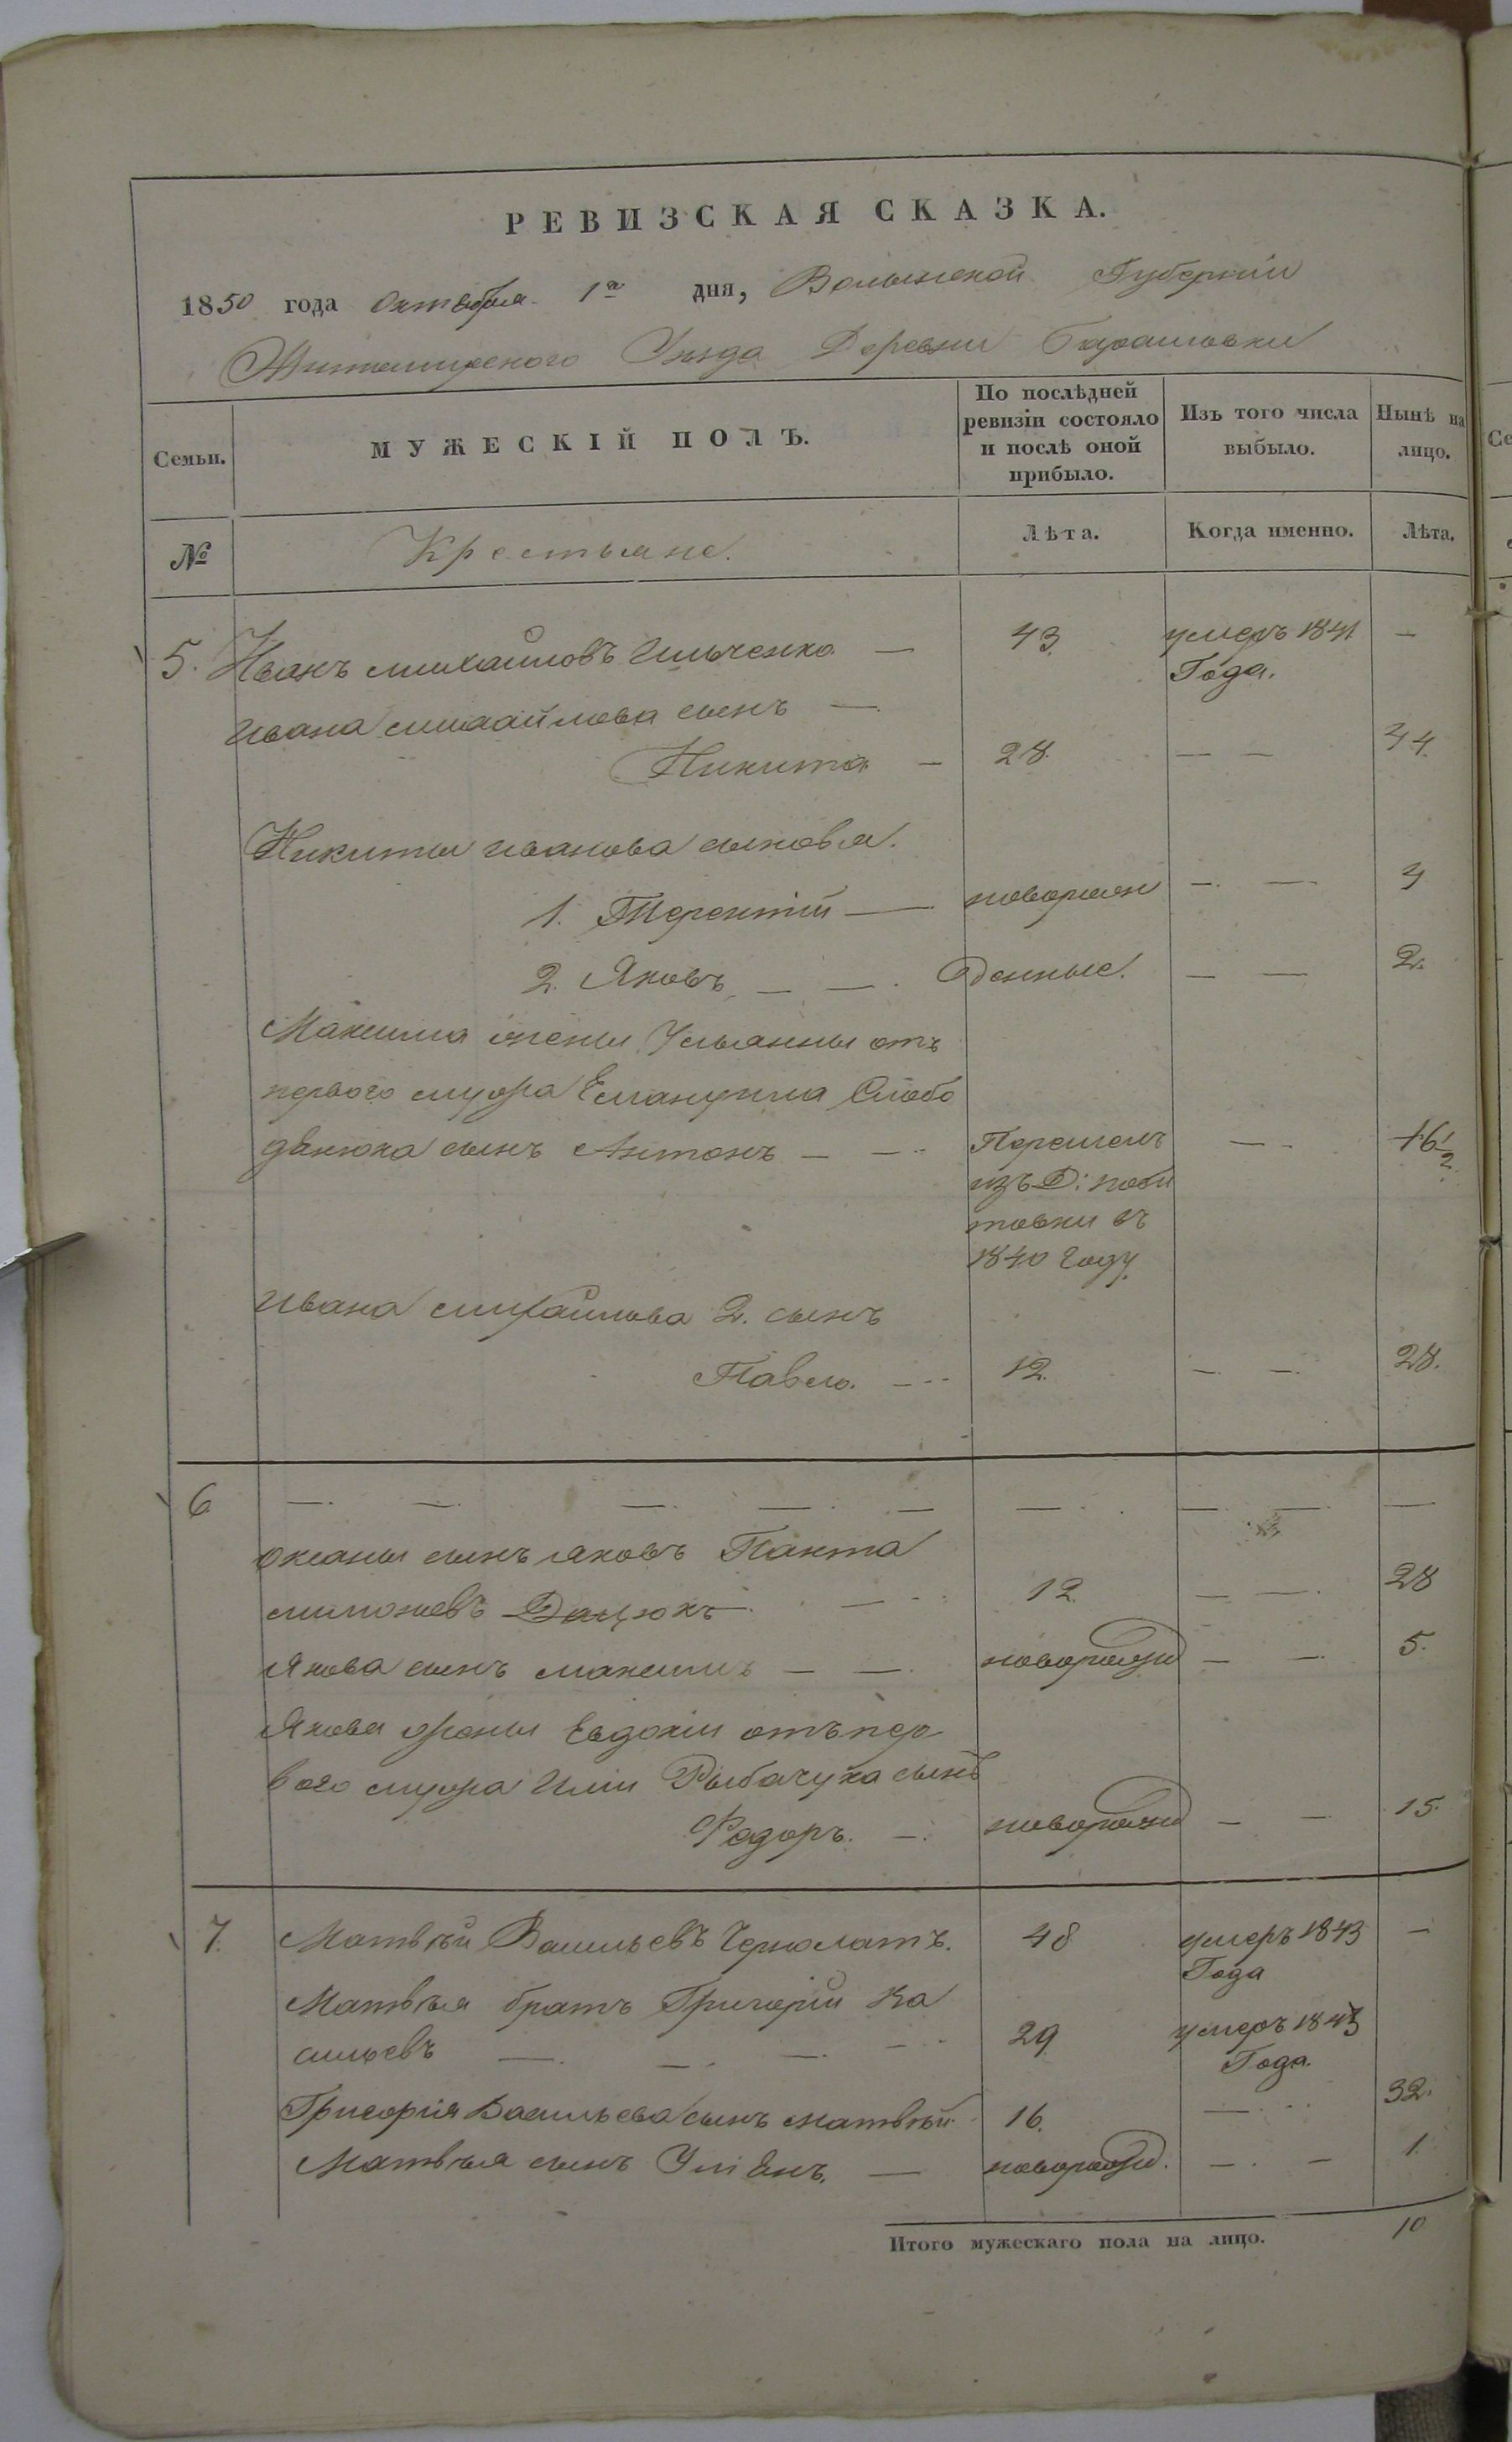 РЕВИЗСКАЯ СКАЗКА.
1850 года Октября 1го дня, Волынской Губерніи
Житомирского Уѣзда Деревни Барашовки
Семьи.
МУЖЕСКІЙ ПОЛЪ.
По послѣдней ревизіи состояло и послѣ оной прибыло.
Изъ того числа выбыло.
Нынѣ на лицо.
№ Крестьяне. Лѣта. Когда именно. Лѣта.
5. Иванъ михайловъ Ильченко — 43. умеръ 1841 —
Года.
Ивана михайлова сынъ —
Никита — 28. — — 44.
Никиты иванова сыновья.
1. Терентій — новорож — — 4
2. Яковъ — — денные. — — 2.
жены Ульянны отъ
первого мужа Емануила Слобо
данюка сынъ Антонъ — — Перешелъ — — 16½
изъ Д:
товки въ
1840 году
Ивана михайлова 2. сынъ
Павло. — 12. — — 28.
6 — — — — — — — — —
оксаны сынъ яковъ Панта
лимоновъ Дацюкъ — 12. — — 28
Якова сынъ максимъ — — новорожд — — 5.
Якова жены Евдокіи отъ пер
вого мужа Иліи Рыбачука сынъ
Федоръ. — новорожд — — 15.
7. Матвѣй Васильевъ 48 умеръ 1843 —
Года
Матвѣя братъ Григорій Ва
сильевъ — — — — 29 умеръ 1843
Года.
Григорія Васильева сынъ матвѣй 16. — 32.
Матвѣя сынъ Уліянъ. — новорожд. — — 1.
Итого мужескаго пола на лицо. 10